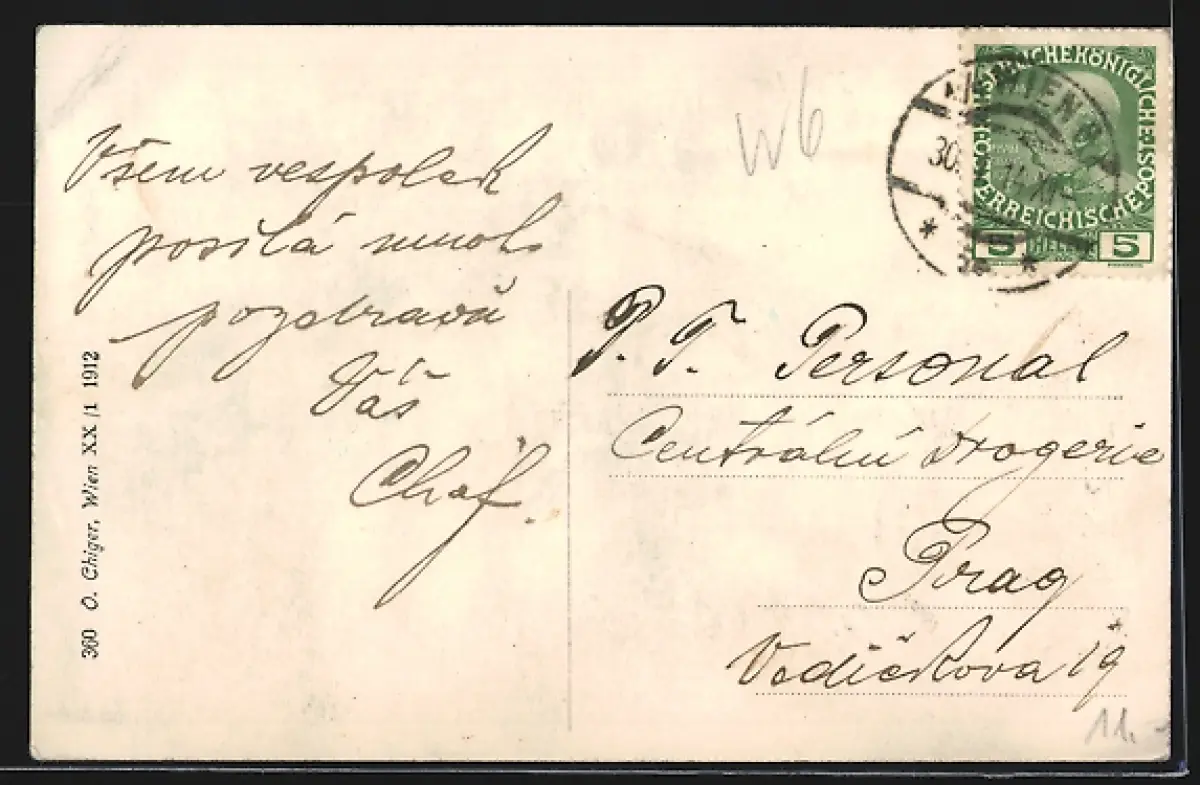 Všem vespolek
posílá mnoho
pozdravů
Váš
Chef.
360 O. Chiger, Wien XX/1 1912
W6
K.K. ÖSTERREICHISCHE POST
5 HELLER 5
WIEN
30.
P. T. Personal
Centrální drogerie
Prag
Vodičkova 19
11.-